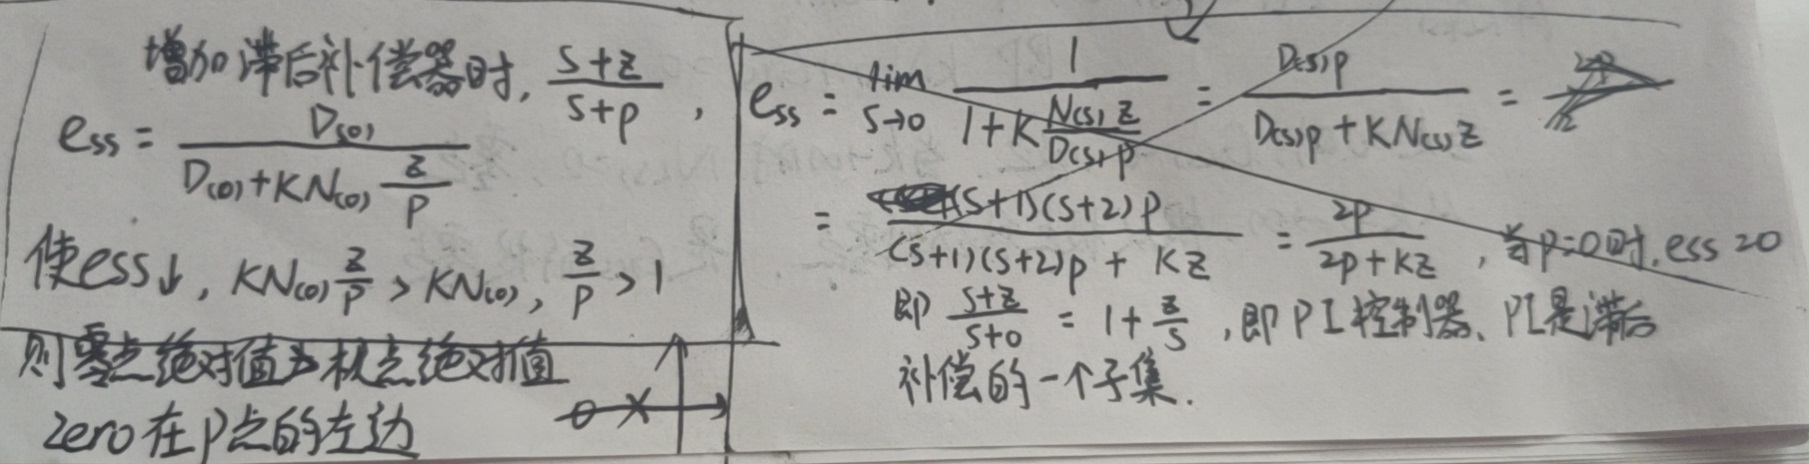 增加滞后补偿器时, \frac{s+z}{s+p},
e_{ss} = \frac{D_{(0)}}{D_{(0)}+KN_{(0)}\frac{z}{p}}
使ess↓, KN_{(0)}\frac{z}{p} > KN_{(0)}, \frac{z}{p} > 1
则零点绝对值>极点绝对值
zero在p点的左边
e_{ss} = \lim_{s→0} \frac{1}{1+K\frac{N(s)z}{D(s)p}} = \frac{D(s)p}{D(s)p+KN(s)z} =
= \frac{(s+1)(s+2)p}{(s+1)(s+2)p+Kz} = \frac{2p}{2p+Kz}, 当p=0时, ess=0
即 \frac{s+z}{s+0} = 1+\frac{z}{s}, 即PI控制器、PI是滞后
补偿的一个子集.